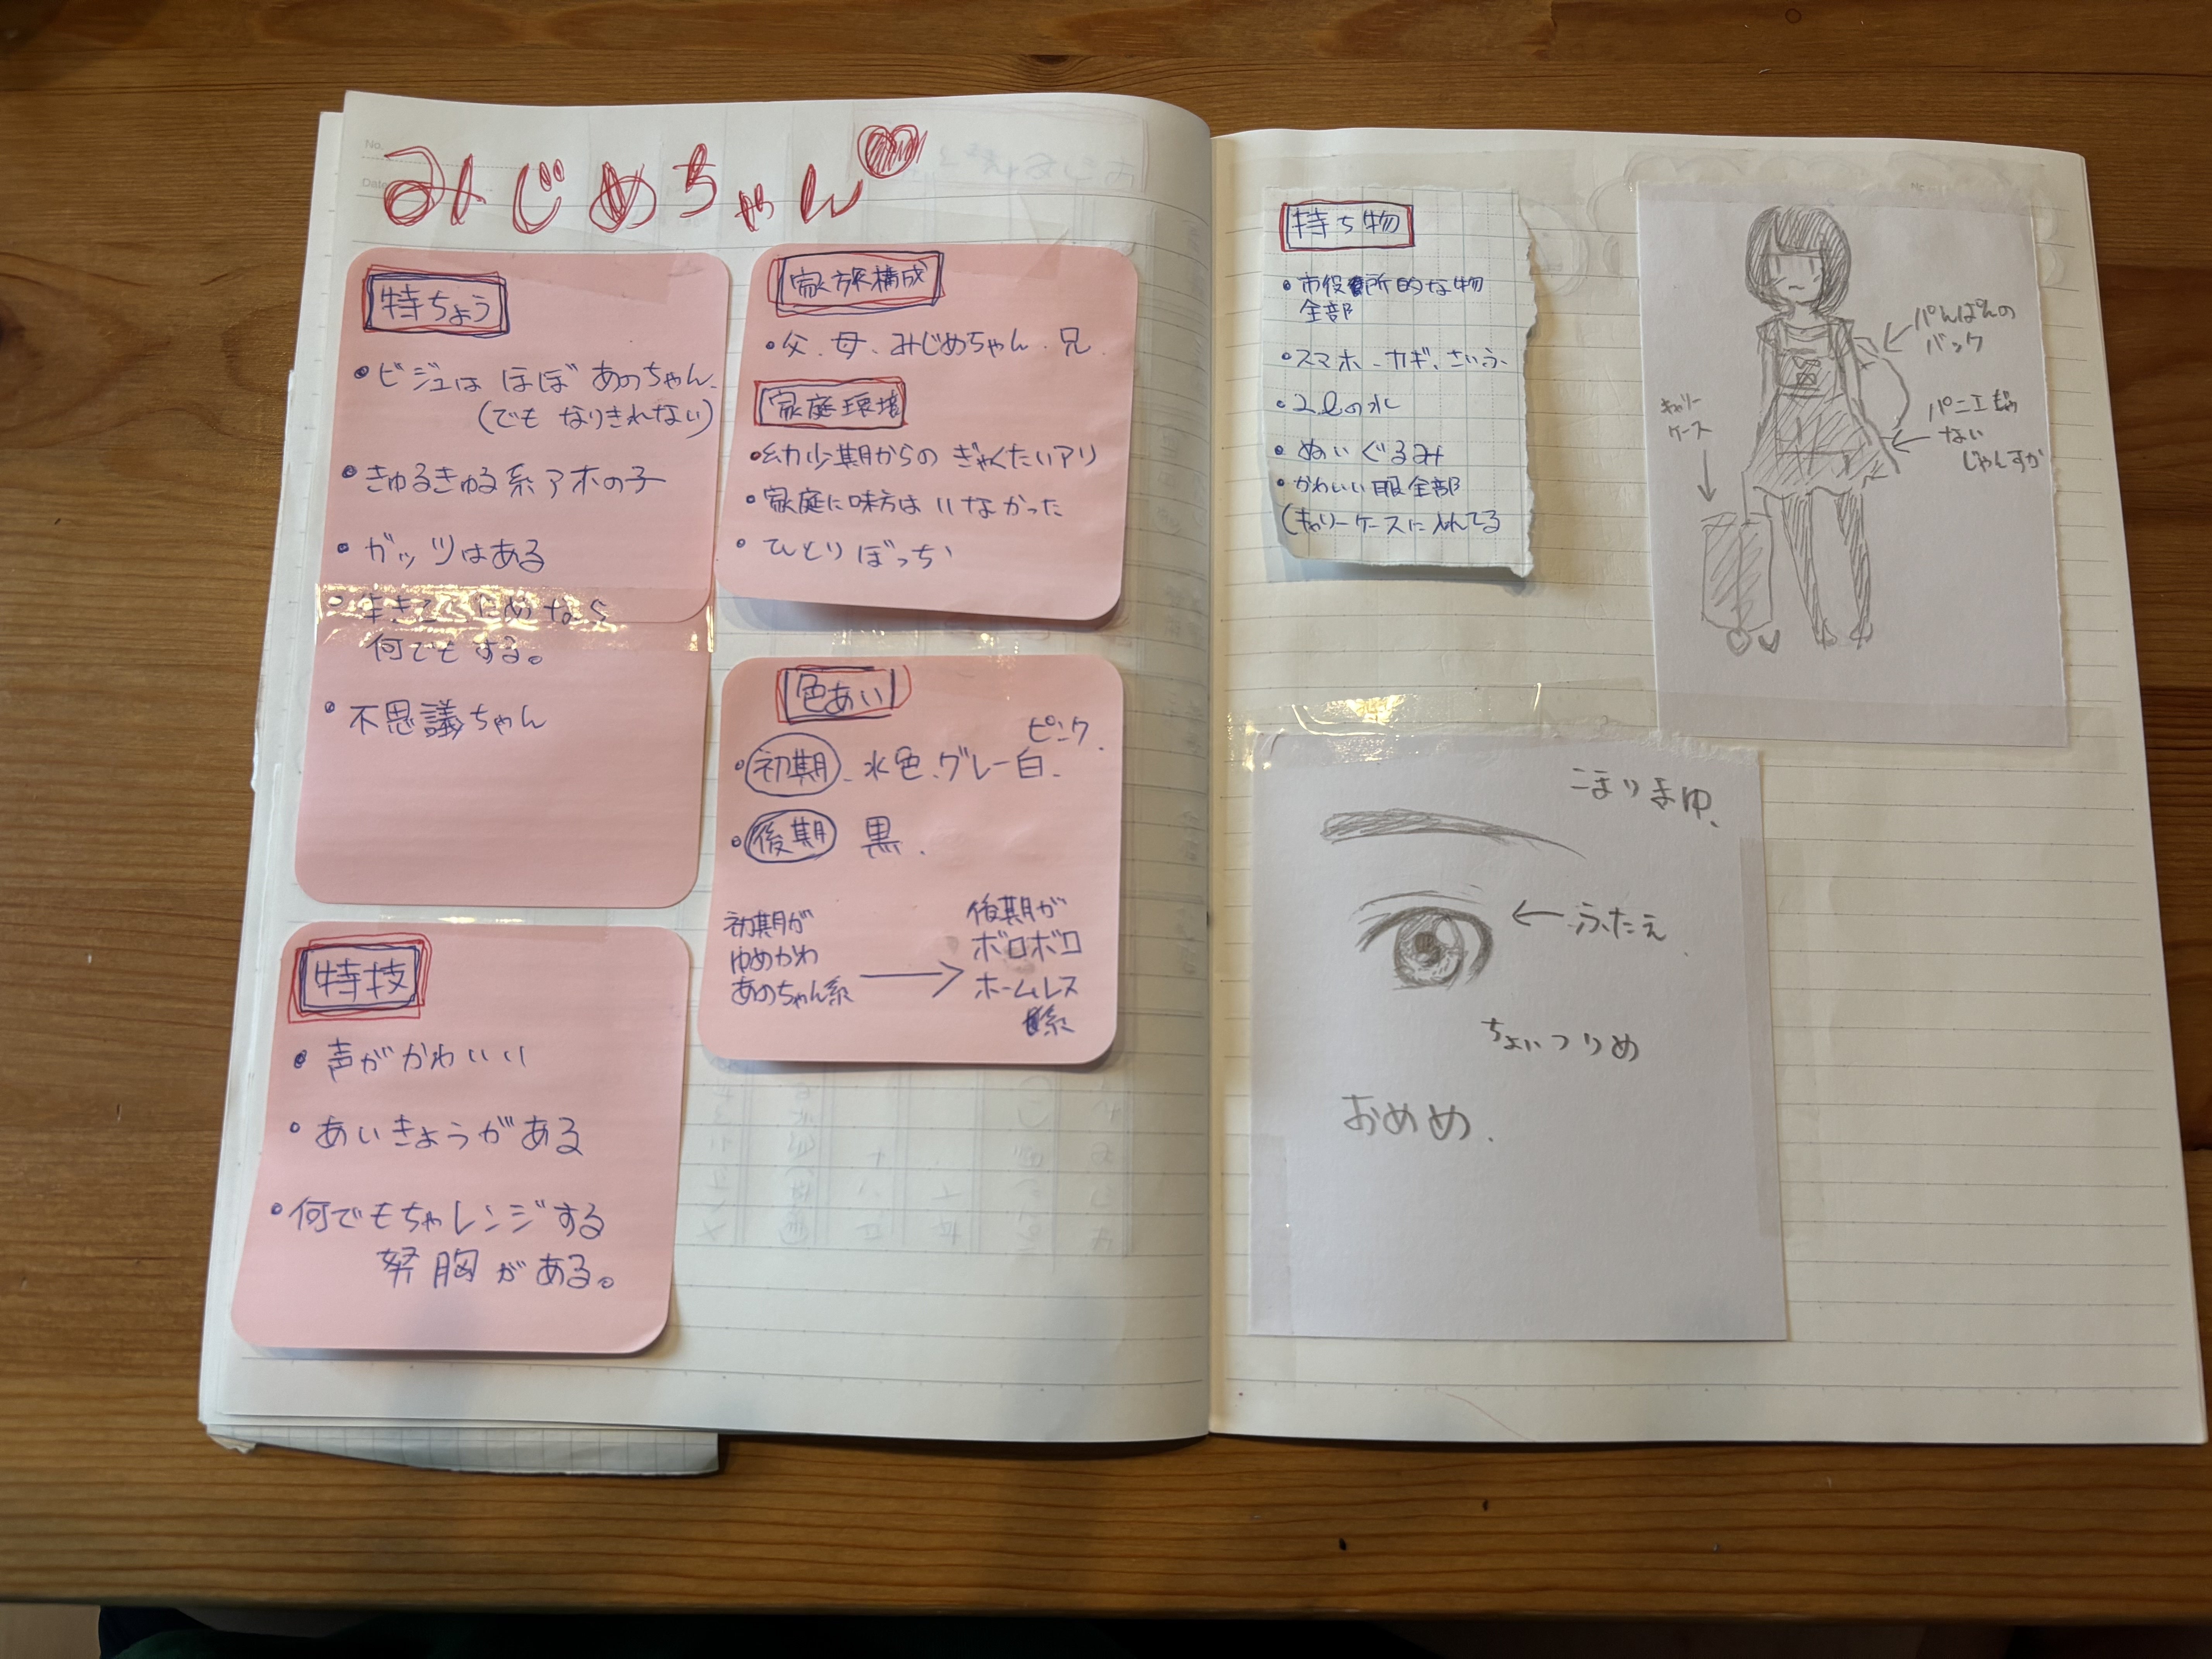 みじめちゃん♡
特ちょう
・ビジュは ほぼ あのちゃん、
(でも なりきれない)
・きゅるきゅる系アホの子
・ガッツはある
・生きるためなら
何でもする。
・不思議ちゃん
特技
・声がかわいい
・あいきょうがある
・何でもちゃレンジする
胸がある。
家族構成
・父、母、みじめちゃん、兄、
家庭環境
・幼少期からの ぎゃくたいアリ
・家庭に味方は いなかった
・ひとりぼっち
色あい
・初期、水色、グレー白、ピンク、
・後期 黒、
初期が
ゆめかわ
あのちゃん系
→
後期が
ボロボロ
ホームレス
系
持ち物
・市役所的な物
全部
・スマホ、カギ、さいふ、
・2ℓの水
・ぬいぐるみ
・かわいい服全部
(キャリーケースに入れてる
パんぱんの
バック
キャリー
ケース
パニエじゃ
ない
じゃんすか
こまりまゆ、
←ふたえ
ちょいつりめ
おめめ、